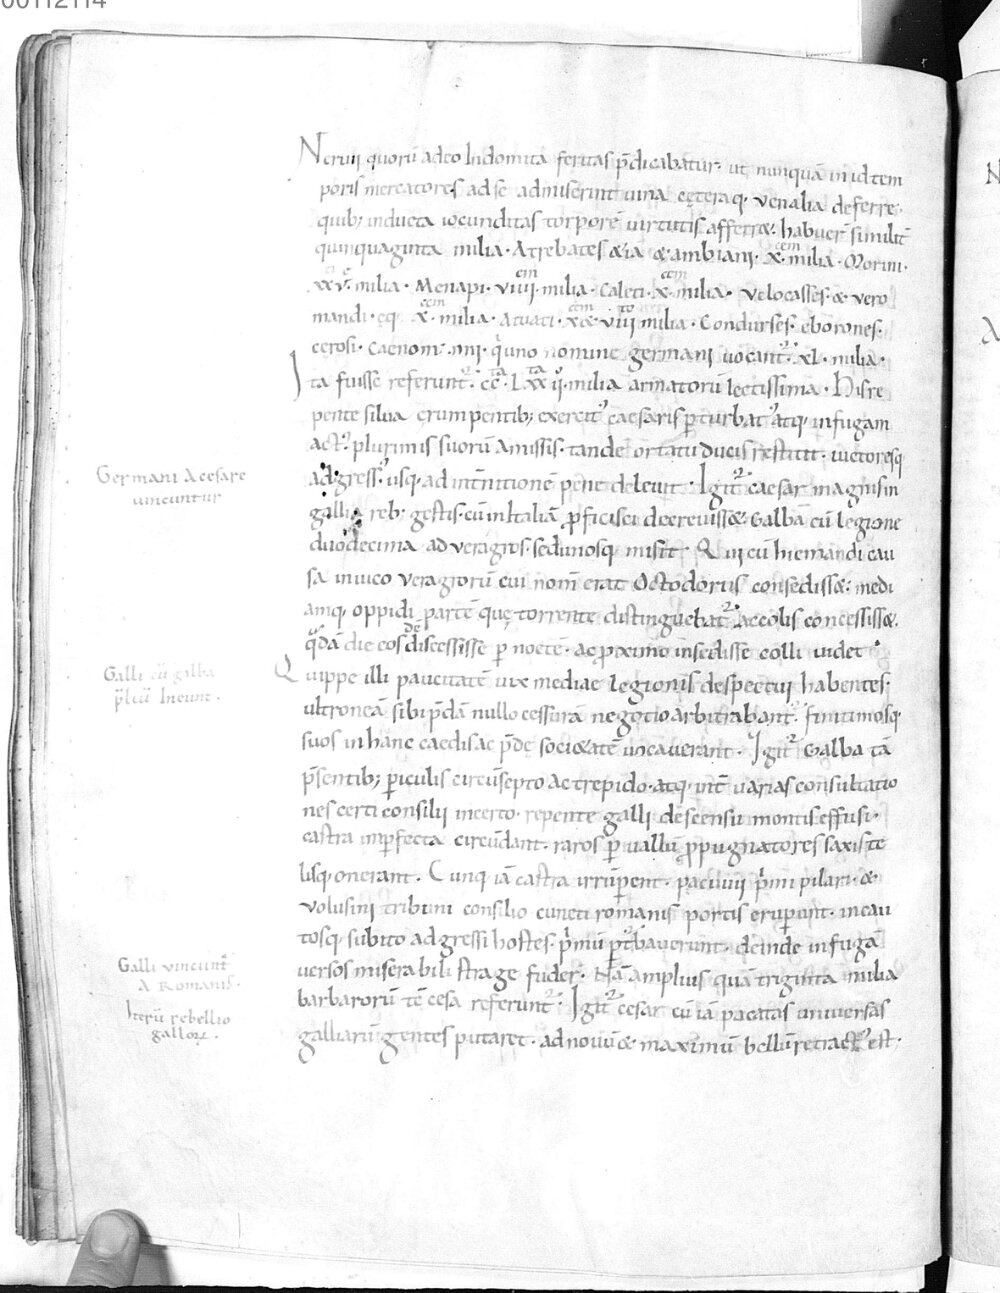 00112114
Neruii quorū adeo Indomita feritas p̄dicabatur· ut nunquā in id tem
poris mercatores ad se admiserint uina cęteraq; venalia deferre·
quib; inducta iocunditas torporē virtutis afferret· habuer̄ similit̄
quinquaginta milia· Atrebates &ia & ambiani· x·cem milia· Morini·
xxv· milia· Menapi· viiii·em milia· Caleti· x·cem milia· Velocasses· & vero
mandi· eq; x·cem milia· Atuati· x·cem & viii·to milia· Condurses· eborones·
cerosi· Caenom̄· iiii· q̄ uno nomine germani uocant᷒· xL· milia·
Ita fuisse referunt᷒· cc·ta Lxx·ta ii· milia armatorū lectissima· His re
pente silua erumpentib; exercit᷒ caesaris p̄turbat᷒ atq; in fugam
act᷒· plurimis suorū Amissis· tandē ortatu ducis restitit· uictoresq;
adgress᷒· usq; ad int̄nitionē pene deleuit· Igit᷒ caesar magnis in
gallia reb; gestis· cū in Italiā p̄ficisci decreuiss&· Galbā cū legione
duodecima ad veragros· sedunosq; misit· Qui cū hiemandi cau
sa in uico veragrorū cui nom̄ erat Octodorus consediss&· medi
amq; oppidi partē quę torrente distinguebat᷒ Accolis concessiss&·
q᷒dā die eos discessisse p̄ noctē· ac p̄ximo insedisse colli uidet·
Quippe illi paucitatē vix mediae legionis despectui habentes·
ultroneā sibi p̄dā nullo cessurā negotio arbitrabant᷒· finitimosq;
suos in hanc caedis ac p̄de soci&atē uocauerant· Igit᷒ Galba tā
p̄sentib; p̄iculis circūsepto ac trepido· atq; int̄ uarias consultatio
nes certi consilii incerto· repente galli descensu montis effusi·
castra imp̄fecta circūdant· raros p̄ vallū p̄pugnatores saxis te
lisq; onerant· Cunq; iā castra irrūpent· pacuuii p̄mi pilari· &
volusini tribuni consilio cuncti romanis portis erup̄unt· incau
tosq; subito adgressi hostes· p̄mū p̄t᷒bauerunt· deinde in fugā
versos miserabili strage fuder̄· Nā amplius quā triginta milia
barbarorū tc̄ cesa referunt᷒· Igit᷒ cesar cū iā pacatas universas
galliarū gentes putaret· ad nouū & maximū bellū retract᷒ est·
Germani A cesare
uincuntur
Galli cū galba
p̄liū Ineunt·
Galli vincunt᷒
A Romanis·
Iterū rebellio
gallorꝝ·